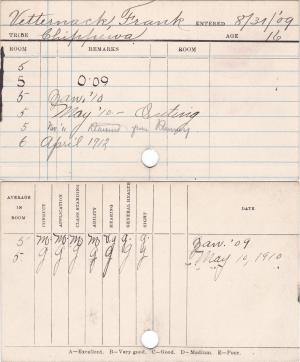 Vetternack, Frank ENTERED 8/31/'09
TRIBE Chippewa AGE 16
ROOM REMARKS ROOM
5
5 0:09
5 Jan. '10
5 May '10 - Outing
5 Nov. '11 Returned - from
6 April 1912
AVERAGE IN ROOM CONDUCT APPLICATION CLASS STANDING ABILITY HEARING GENERAL HEALTH SIGHT DATE
5 M. M. M. M Vg G. G. Jan. '09
5 G G G G G G G May 10, 1910
A—Excellent. B—Very good. C—Good. D—Medium. E—Poor.